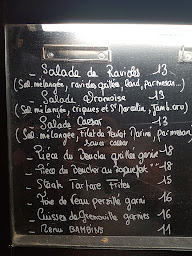 - Salade de Ravioles 13
(Sal. mélangée, ravioles grillées, lard, parmesan...)
- Salade Dromoise 13
(Sal. mélangée, criques et St Marcelin, Jamb. cru)
- Salade Caesar 13
(Sal. mélangée, Filet de Poulet Mariné, parmesan,
sauce caesar
- Pièce du Boucher grillée garnie - 18
- Pièce du Boucher au Roquefort - 18
- Steak Tartare Frites - 15
- Foie de Veau persillé garni - 16
- Cuisses de Grenouille garnies - 16
- Menu BAMBINS 11